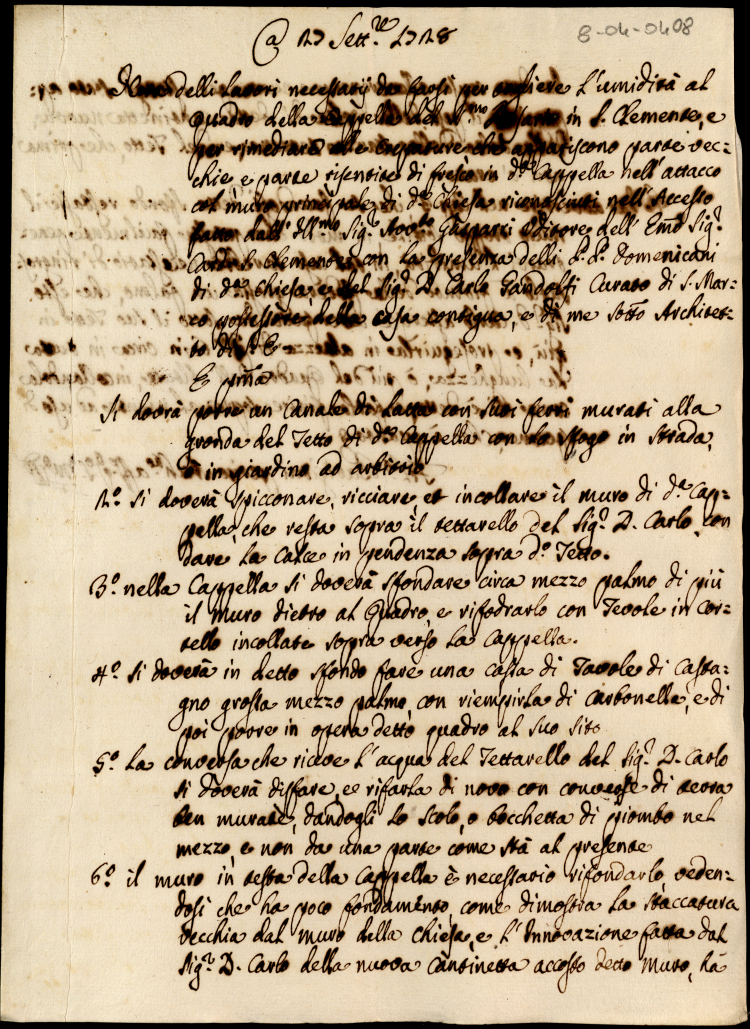 @ 27 Sett.re 1728
8-04-0408
Nota delli Lavori necessarij da farsi per togliere l'umidità al
quadro della Cappella del S.mo Rosario in S. Clemente, e
per rimediare alle crepature che appariscono parte vec-
chie e parte risentite di fresco in d.a Cappella nell'attacco
col muro principale di d.a Chiesa riconosciuti nell'Accesso
fatto dall'Ill.mo Sig.r Avv.to Gasparri Uditore dell'Emo Sig.r
Card. S. Clemente con la presenza delli P.P. Domenicani
di d.a Chiesa, e del Sig.r D. Carlo Gandolfi Curato di S. Mar=
co possessore della casa contigua, e di me Sotto Architet=
to di S. E
E pma
Si dovrà porre un Canale di Latta con suoi ferri murati alla
gronda del Tetto di d.a Cappella con lo sfogo in strada,
o in giardino ad arbitrio
2.o Si doverà spicconare, ricciare, et incollare il muro di d.a Cap=
pella, che resta sopra il tettarello del Sig.r D. Carlo, con
dare la Calce in pendenza sopra d.o Tetto.
3.o nella Cappella si doverà sfondare circa mezzo palmo di più
il muro dietro al Quadro, e rifodrarlo con Tevole in Cor=
tello incollate sopra verso la Cappella.
4.o Si doverà in detto sfondo fare una cassa di Tavole di Casta=
gno grossa mezzo palmo, con riempirla di Carbonella, e di
poi porre in opera detto quadro al suo sito
5.o La conversa che riceve l'acqua del Tettarello del Sig.r D. Carlo
si doverà disfare, e rifarla di novo con converse di terra
ben murate, dandogli lo scolo, o bocchetta di piombo nel
mezzo, e non da una parte come stà al presente
6.o il muro in testa della Cappella è necessario rifondarlo, veden=
dosi che ha poco fondamento, come dimostra la staccatura
vecchia dal muro della Chiesa, e l'Innovazione fatta dal
Sig.r D. Carlo della nuova Cantinetta accosto detto muro, hà